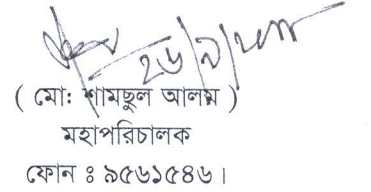 ২৬/৯/
( মো: শামছুল আলম )
মহাপরিচালক
ফোন ঃ ৯৫৬১৫৪৬।